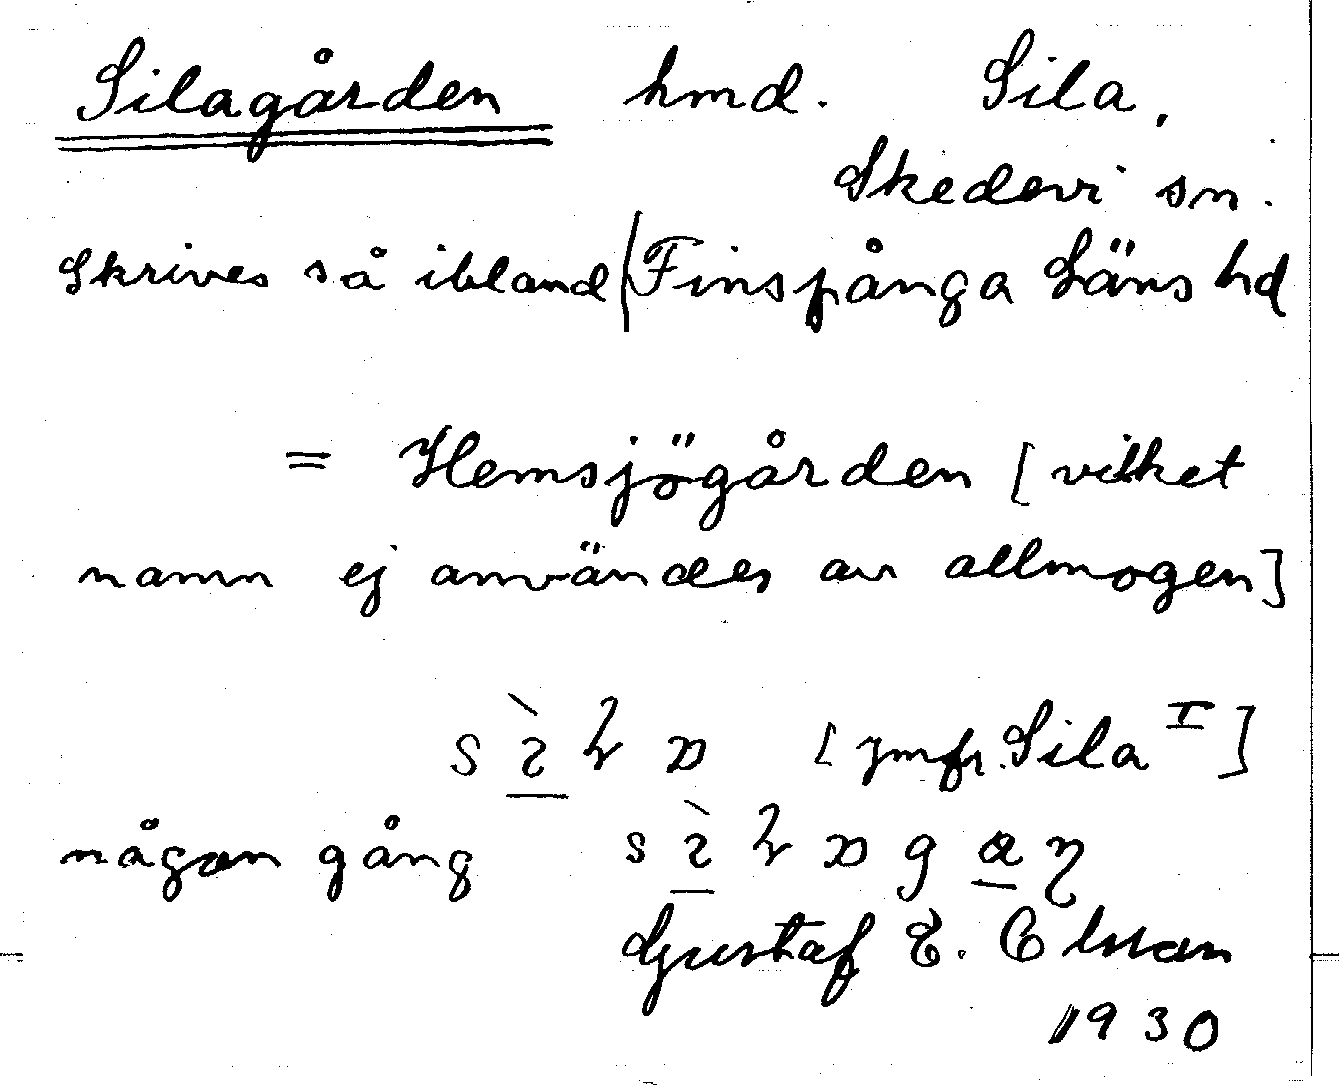 Silagården hmd. Sila,
Skedevi sn.
Skrives så ibland (Finspånga Läns hd
= Hemsjögården [vilket
namn ej användes av allmogen]
[jmfr. Sila I]
någon gång
Gustaf E.
1930